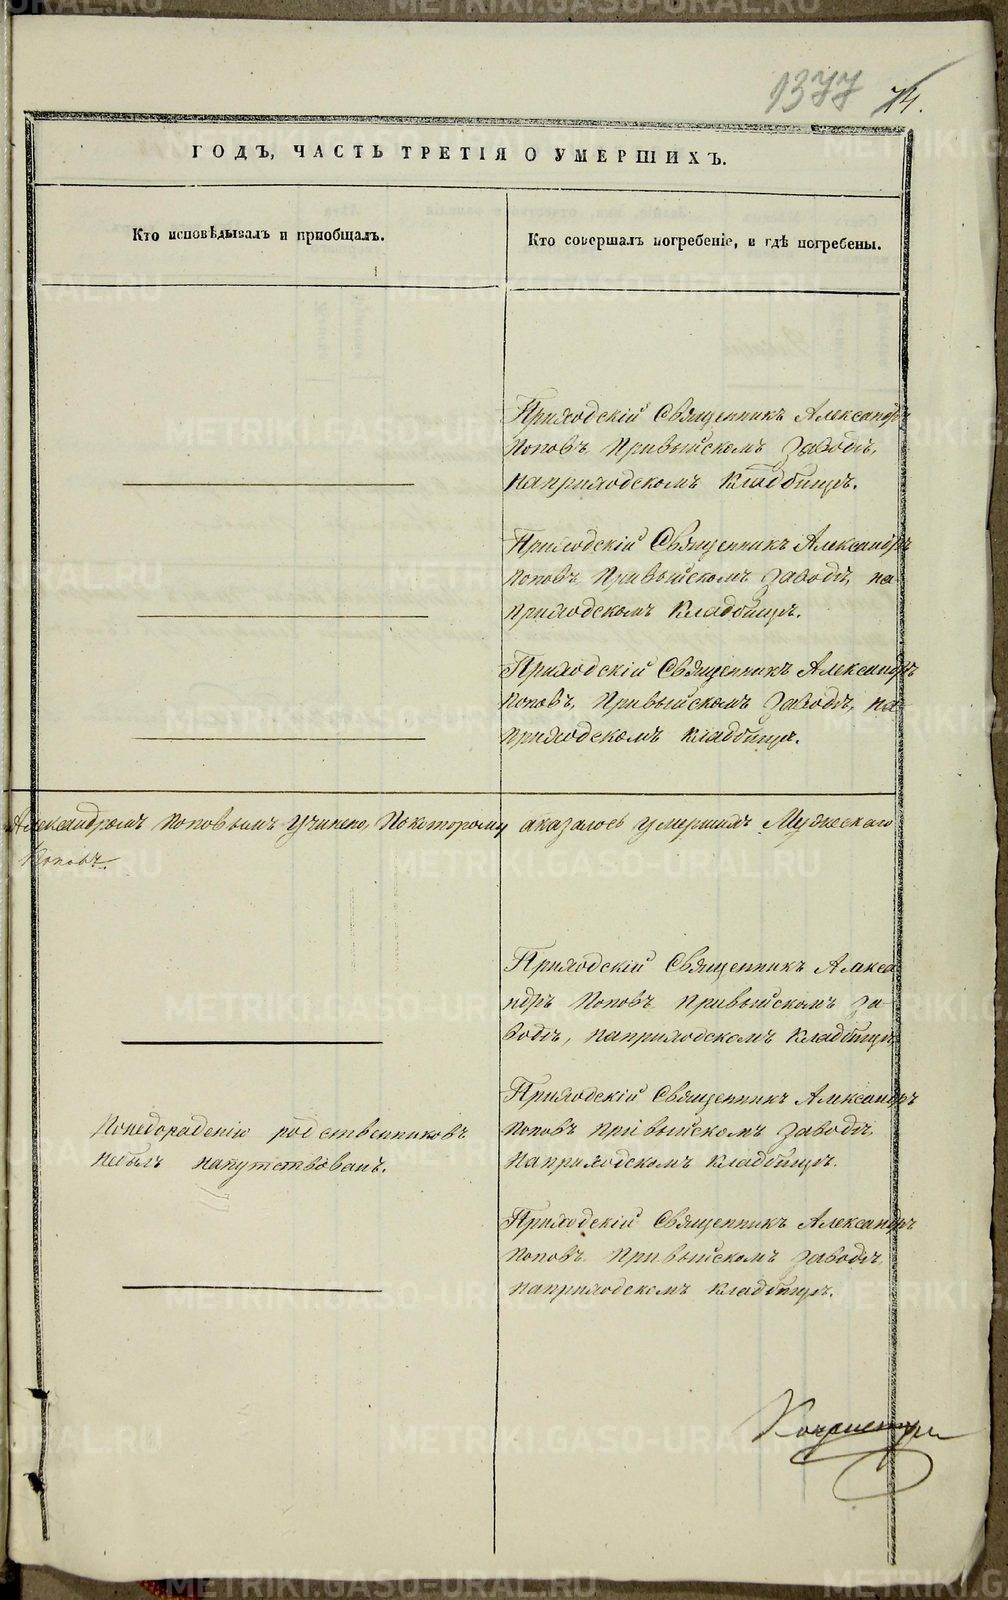 1377 74.
ГОДЪ, ЧАСТЬ ТРЕТІЯ О УМЕРШИХЪ.
Кто исповѣдывалъ и приобщалъ.
Кто совершалъ погребеніе, и гдѣ погребены.
Приходскій Священникъ Александръ
Поповъ Привыйскомъ заводѣ,
наприходскомъ Кладбищѣ.
Приходскій Священникъ Александръ
Поповъ Привыйскомъ заводѣ, на
приходскомъ Кладбищѣ.
Приходскій Священникъ Александръ
Поповъ, Привыйскомъ заводѣ, на
приходскомъ кладбищѣ.
Александромъ Поповымъ Учинено, Покоторому аказалось умершихъ Мужескаго
Поповъ.
Приходскій Священникъ Алекса
ндръ Поповъ Привыйскомъ за-
водѣ, наприходскомъ Кладбищѣ
Понедорадению родственниковъ
небылъ напутствованъ.
Приходскій Священникъ Александръ
Поповъ Привыйскомъ заводѣ,
Наприходскомъ Кладбищѣ.
Приходскій Священникъ Александръ
Поповъ Привыйскомъ заводѣ,
наприходскомъ Кладбищѣ.
METRIKI.GASO-URAL.RU